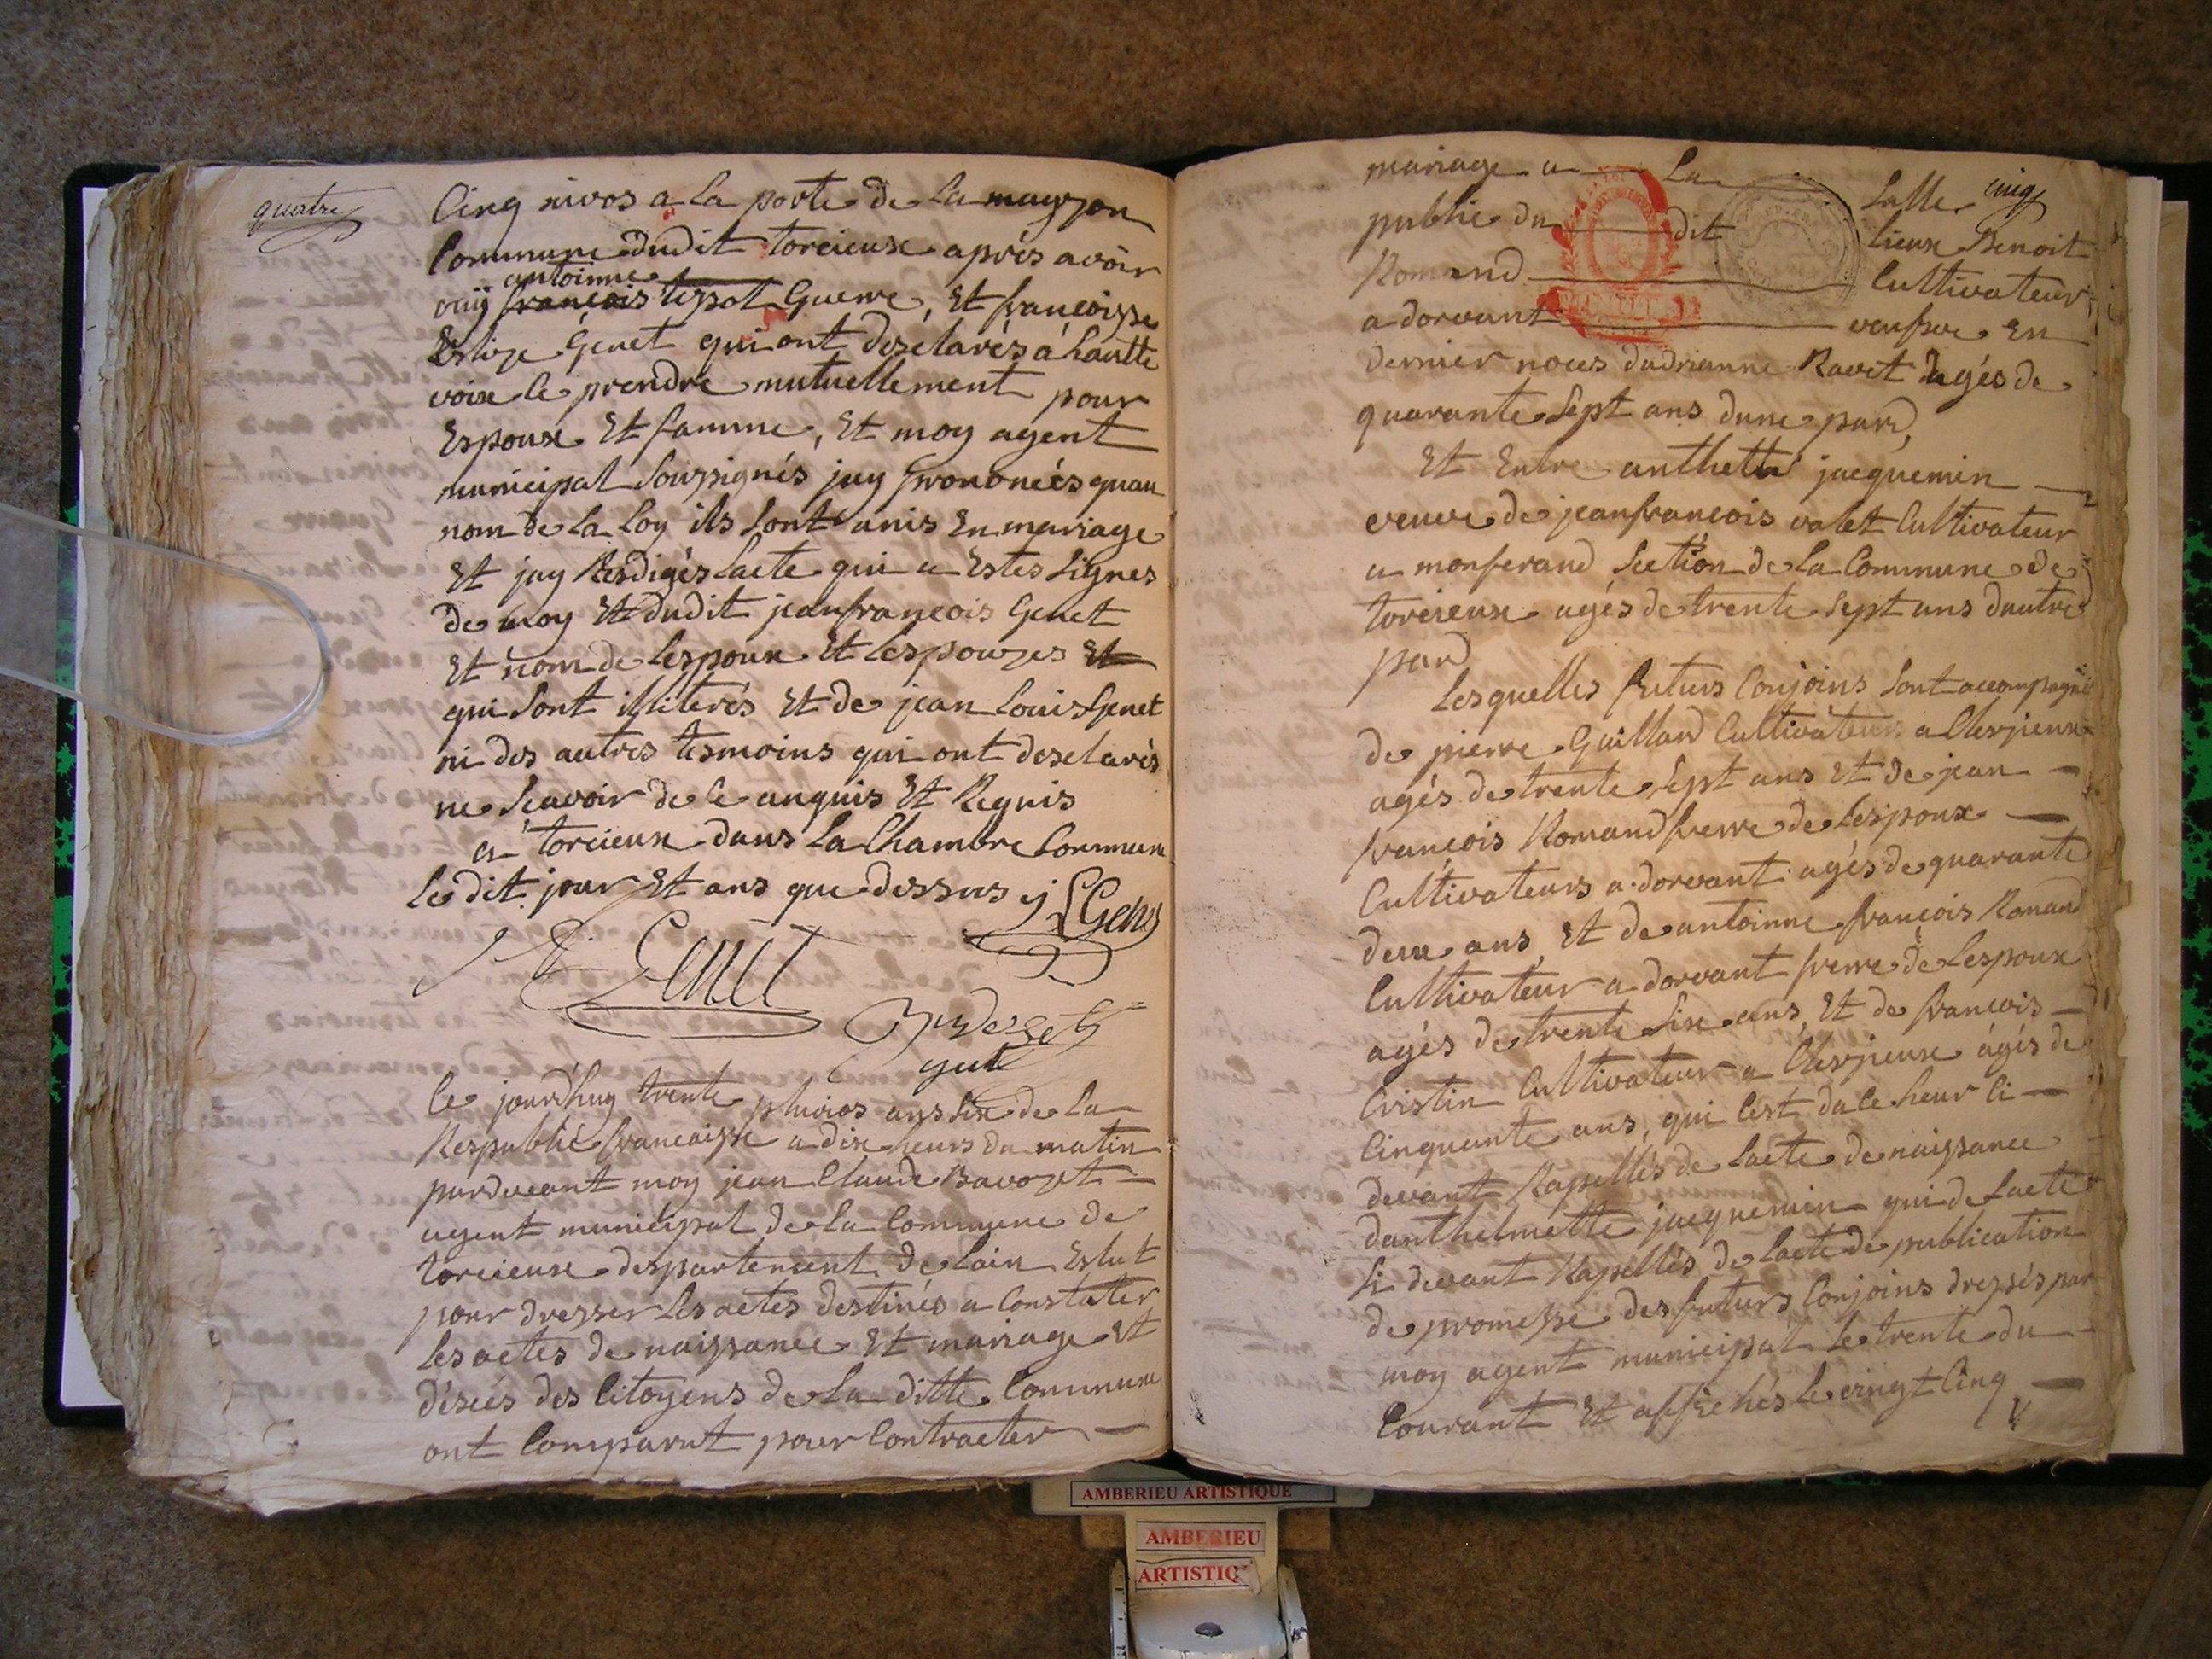 quatre
Cinq nivos a la porte de la mayzon
Commune dudit torcieux après avoir
antoinne
ouij françois tipot Guerre, Et françoisse
Eslize Genet qui ont desclarés a haulte
voix ce prendre mutuellement pour
Espoux Et famme, Et moy agent
municipal Souzsignés jay prononcés quau
nom de La Loy ils sont unis En mariage
Et jay Resdigés Lacte qui a Estes Signes
de moy Et dudit jeanfrançois Genet
Et nom de Lespoux Et Lespouzes Et
qui Sont illiterés Et de jean Louis Genet
ni des autres tesmoins qui ont desclarés
ne Scavoir de ce anquis Et Requis
a torcieux dans La Chambre Commune
Le dit jour Et ans que dessus j L Genet
Genet
agent
Ce jourdhuy trente pluvios ans Six de La
Respublié francaisse a dix heurs du matin
pardevant moy jean Claude Bavozet
agent municipal de La Commune de
torcieux despartement de Lain Eslut
pour dresser Les actes destinés a Constater
Les actes de naissance Et mariage Et
déscés des Citoyens de La ditte Commune
ont Comparut pour Contracter
mariage a La Salle cinq
public du dit lieux Benoit
Romand Cultivateur
a dorvant veufve En
dernier noces dadrianne Ravet agés de
quarante Sept ans dune pard,
Et Entre anthelte jacquemin
veuve de jeanfrancois valet Cultivateur
a monferand Section de La Commune de
torcieux agés de trente Sept ans dautre
pard
Lesquelles futurs Conjoins Sont accompagnié
de pierre Guillard Cultivateur a Clesjieux
agés de trente Sept ans Et de jean
françois Romand frerre de Lespoux
Cultivateurs a dorvant agés de quarante
deux ans, Et de antoinne françois Romand
Cultivateur a dorvant frerre de Lespoux
agés de trente Six ans, Et de francois
Cristin Cultivateur a Clesjieux ágés de
Cinquante ans, qui Cest da ce heur Ci
devant Rapellés de Lacte de naissance
danthelmette jacquemin qui de Lacte
Si devant Rapellés de Lacte de publication
de promesse des futurs Conjoins dressés par
moy agent municipal Le trente du
Courant Et affichés Le vingt Cinq
AMBERIEU ARTISTIQUE
AMBERIEU
ARTISTIQ